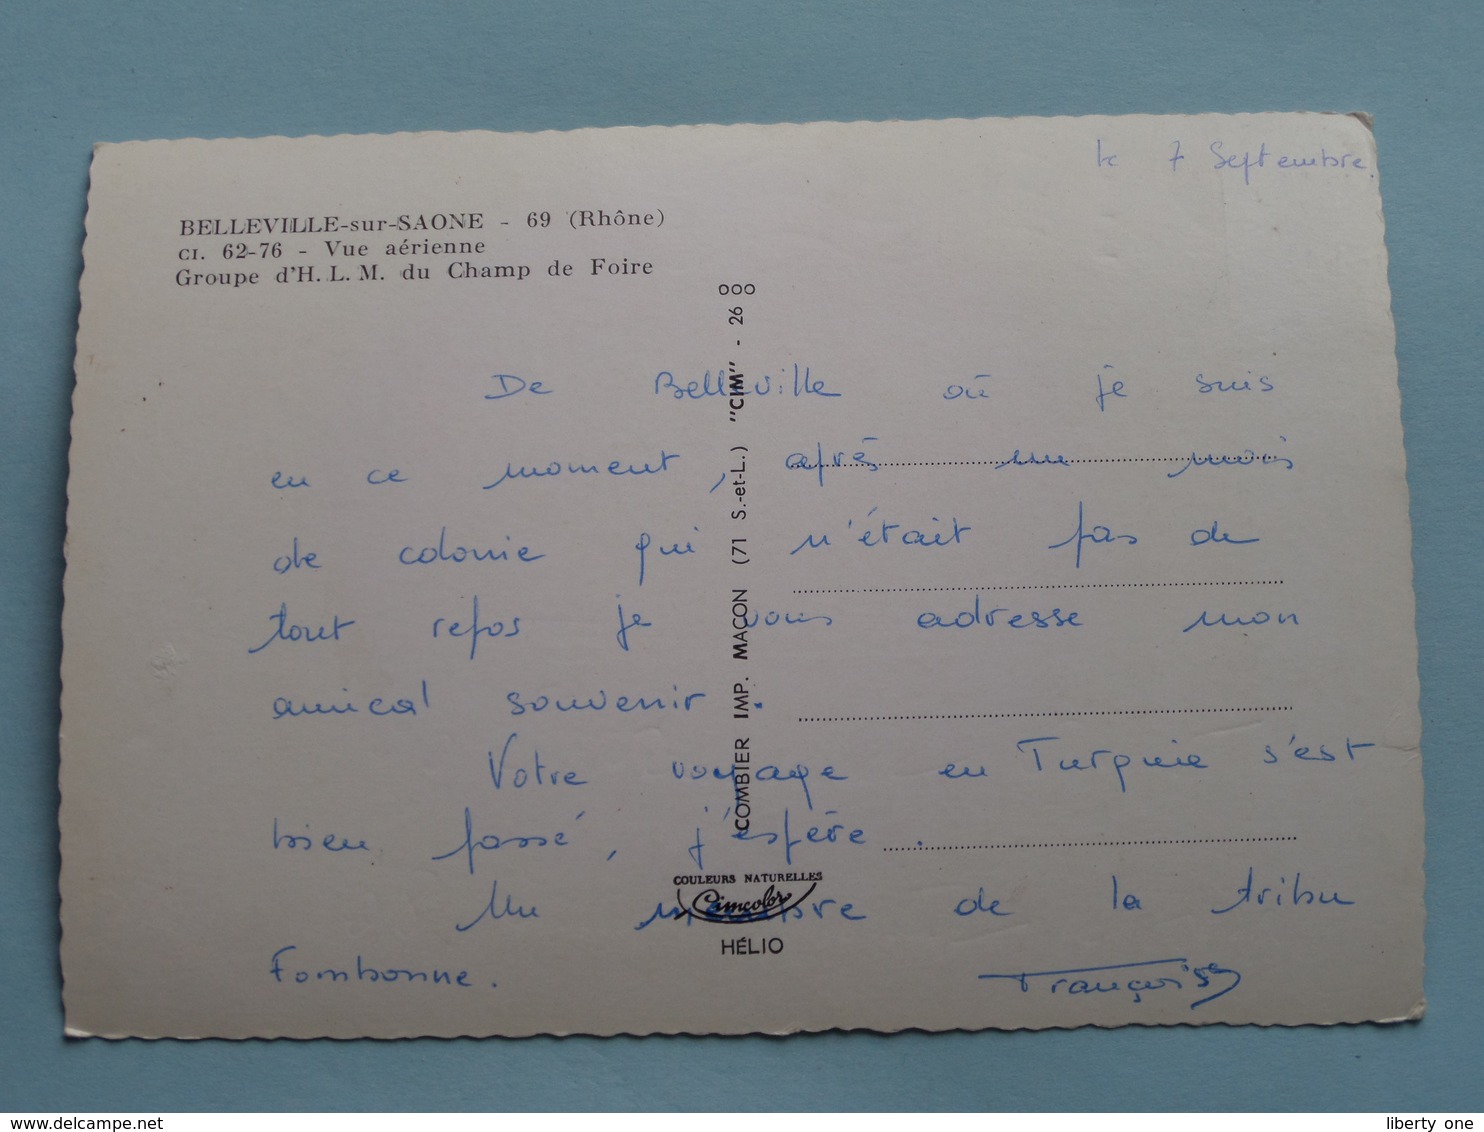 le 7 Septembre.
BELLEVILLE-sur-SAONE - 69 (Rhône)
CI. 62-76 - Vue aérienne
Groupe d'H.L.M. du Champ de Foire
De Belleville où je suis
en ce moment, après un mois
de colonie qui n'était pas de
tout repos je vous adresse mon
amical souvenir.
Votre voyage en Turquie s'est
bien passé, j'espère.
Un membre de la tribu
Fombonne.
Françoise
COMBIER IMP. MACON (71 S.-et-L.) "CIM" - 26 000
COULEURS NATURELLES
Cimcolor
HÉLIO
www.delcampe.net
liberty one